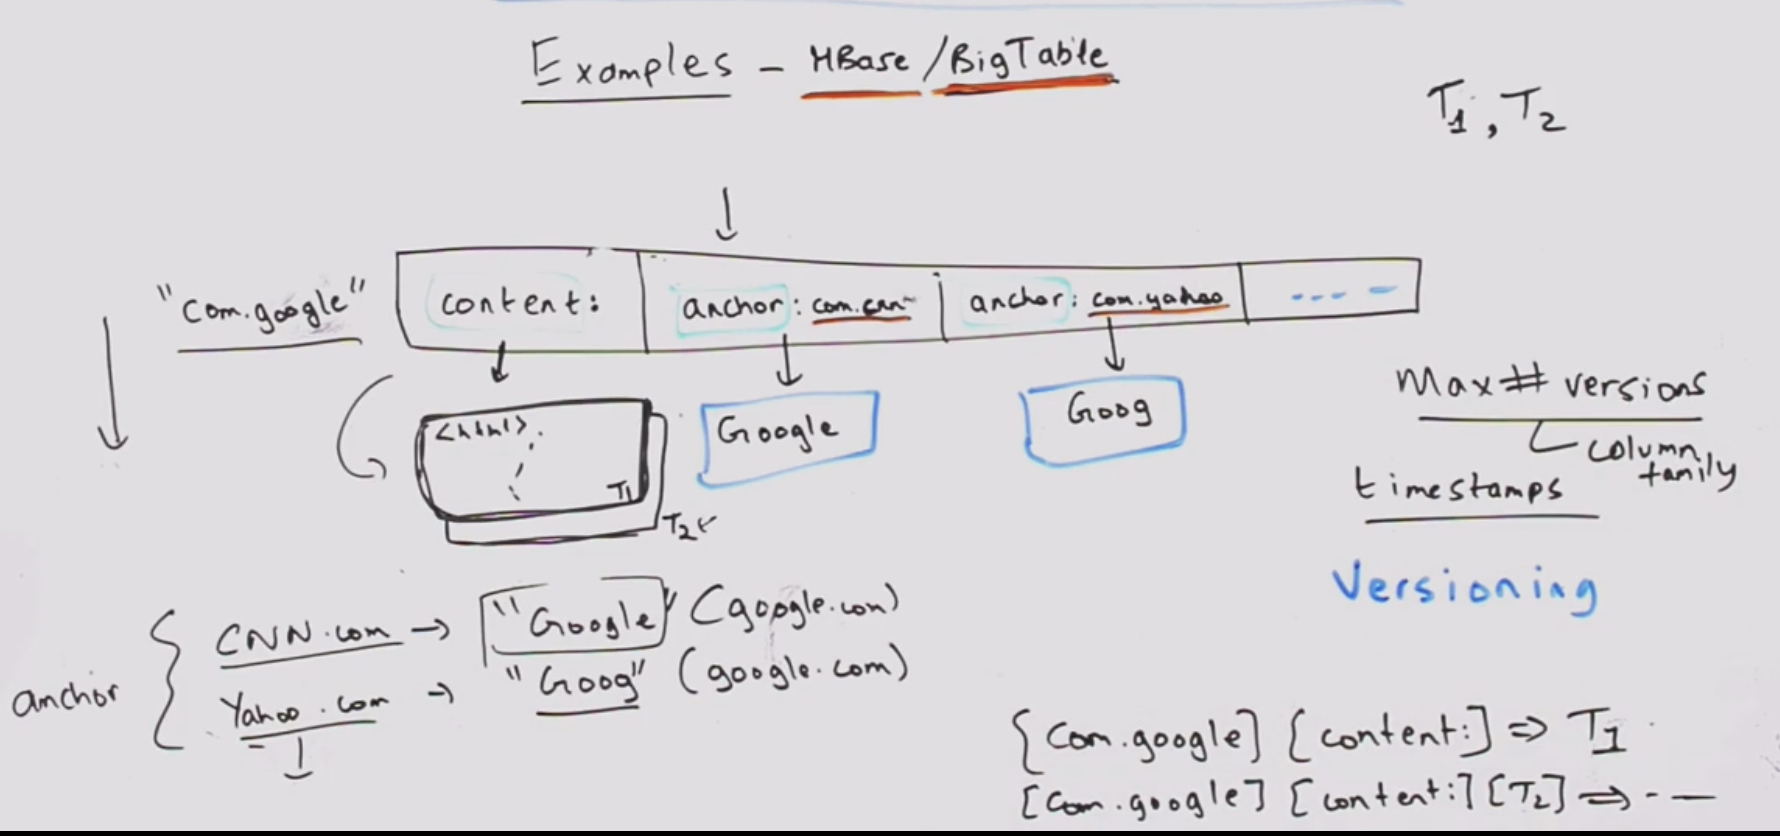 Examples - HBase / BigTable
T1, T2
"com.google"
content:
anchor: com.cnn
anchor: com.yahoo
---- -
<html>
T1
T2
Google
Goog
Max # versions
column family
timestamps
Versioning
anchor
CNN.com → "Google" (google.com)
Yahoo.com → "Goog" (google.com)
[com.google] [content:] ⇒ T1
[com.google] [content:] [T2] ⇒ - —